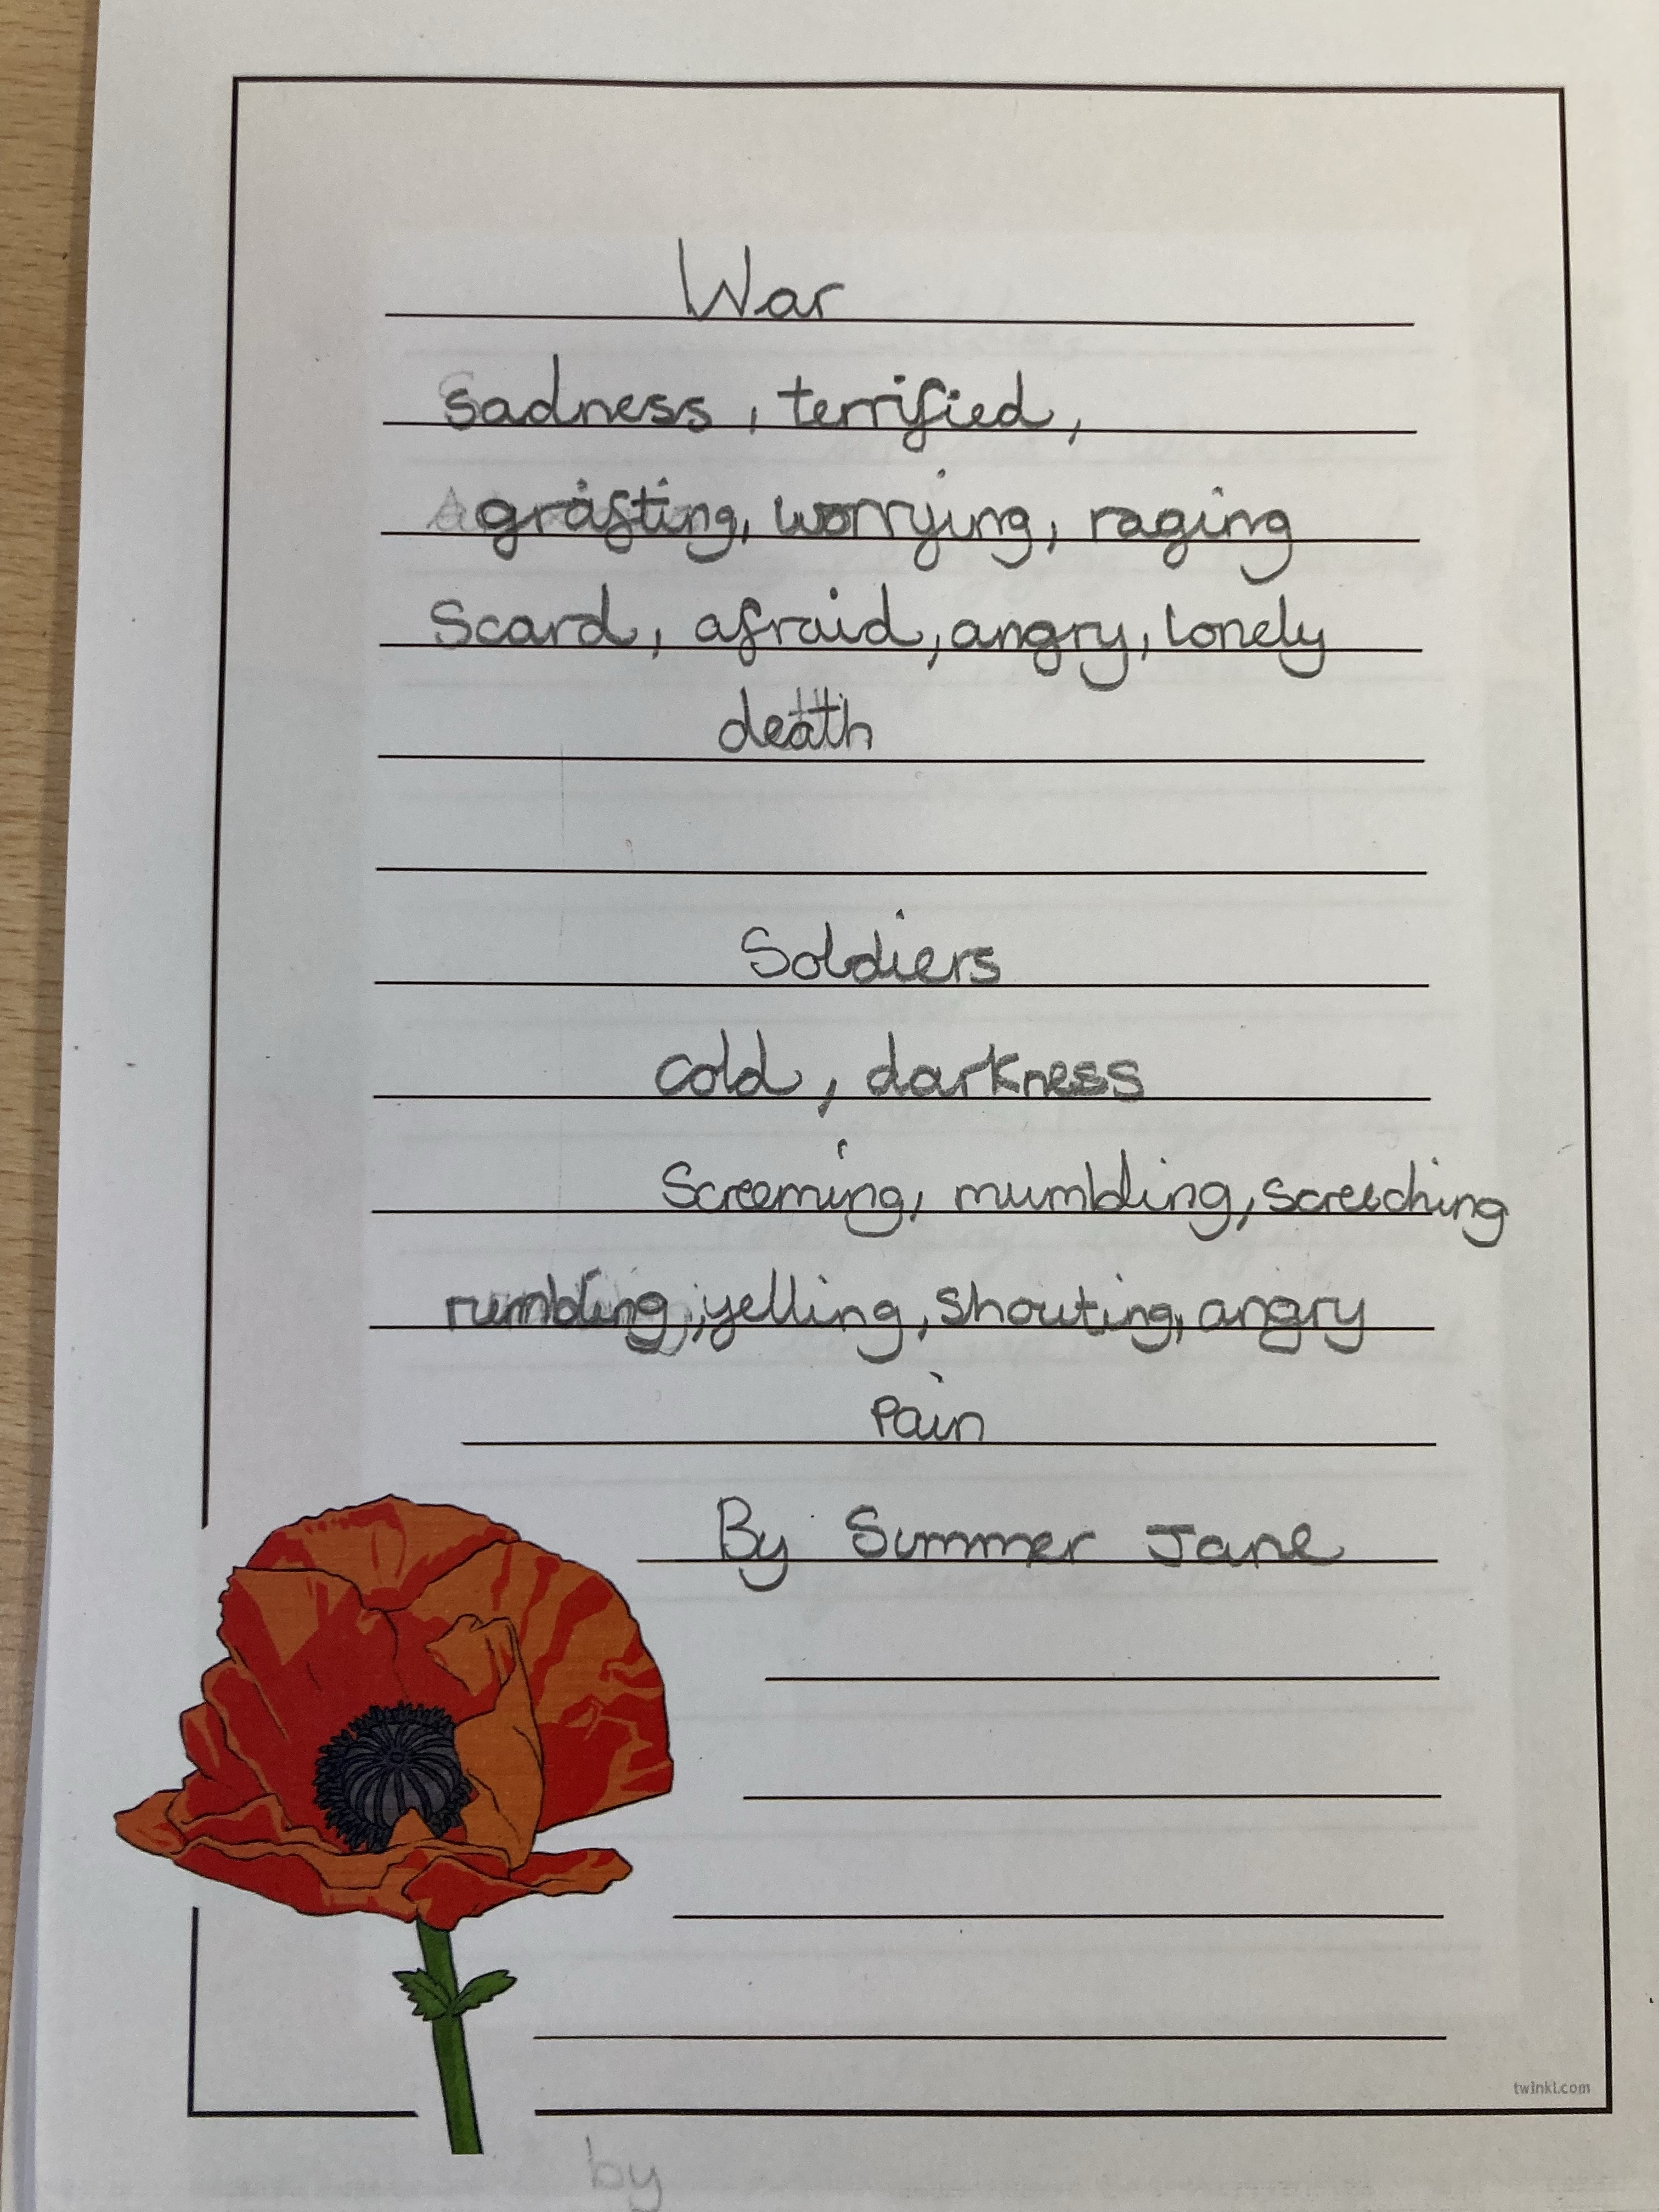 War
sadness, terrified,
grafting, worrying, raging
Scard, afraid, angry, lonely
death
Soldiers
cold, darkness
Screeming, mumbling, screeching
rumbling, yelling, shouting, angry
Pain
By Summer Jane
twinkl.com
by